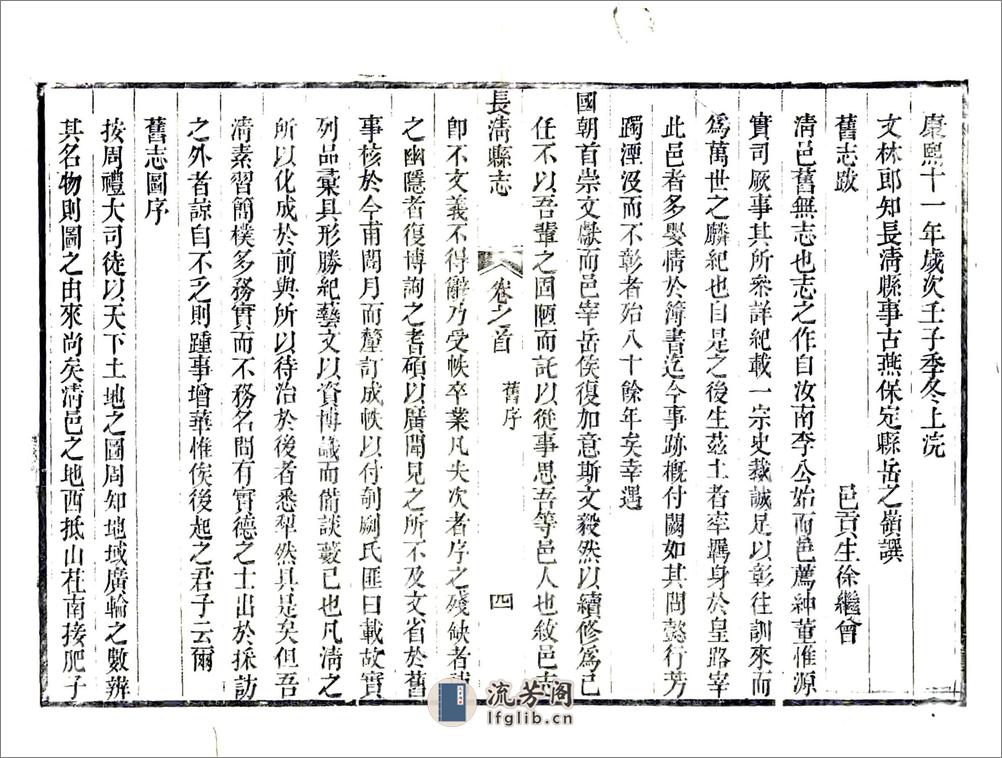 康熙十一年歲次壬子季冬上浣
文林郎知長清縣事古燕保定縣岳之嶺譔
舊志跋
邑貢生徐繼曾
清邑舊無志也志之作自汝南李公始而邑薦紳董惟源
實司厥事其所羅詳紀載一宗史裁誠足以彰往訓來而
為萬世之麟紀也自是之後生茲土者率羈身於皇路宰
此邑者多嬰情於簿書迄今事跡槪付闕如其間懿行芳
躅湮沒而不彰者殆八十餘年矣幸遇
國朝首崇文獻而邑宰岳侯復加意斯文毅然以續修為己
任不以吾輩之固陋而託以從事思吾等邑人也敘邑志
長清縣志
卷之首
舊序
四
卽不文義不得辭乃受帙卒業凡失次者序之殘缺者補
之幽隱者復博詢之耆碩以廣聞見之所不及文省於舊
事核於今甫閱月而釐訂成帙以付剞劂氏匪曰載故實
列品彙具形勝紀藝文以資博議而備談藪已也凡清之
所以化成於前與所以待治於後者悉犁然具是矣但吾
清素習簡樸多務實而不務名間有實德之士出於採訪
之外者諒自不乏則踵事增華惟俟後起之君子云爾
舊志圖序
按周禮大司徒以天下土地之圖周知地域廣輪之數辨
其名物則圖之由來尚矣清邑之地西抵山茌南接肥子
流芳阁
lfglib.cn